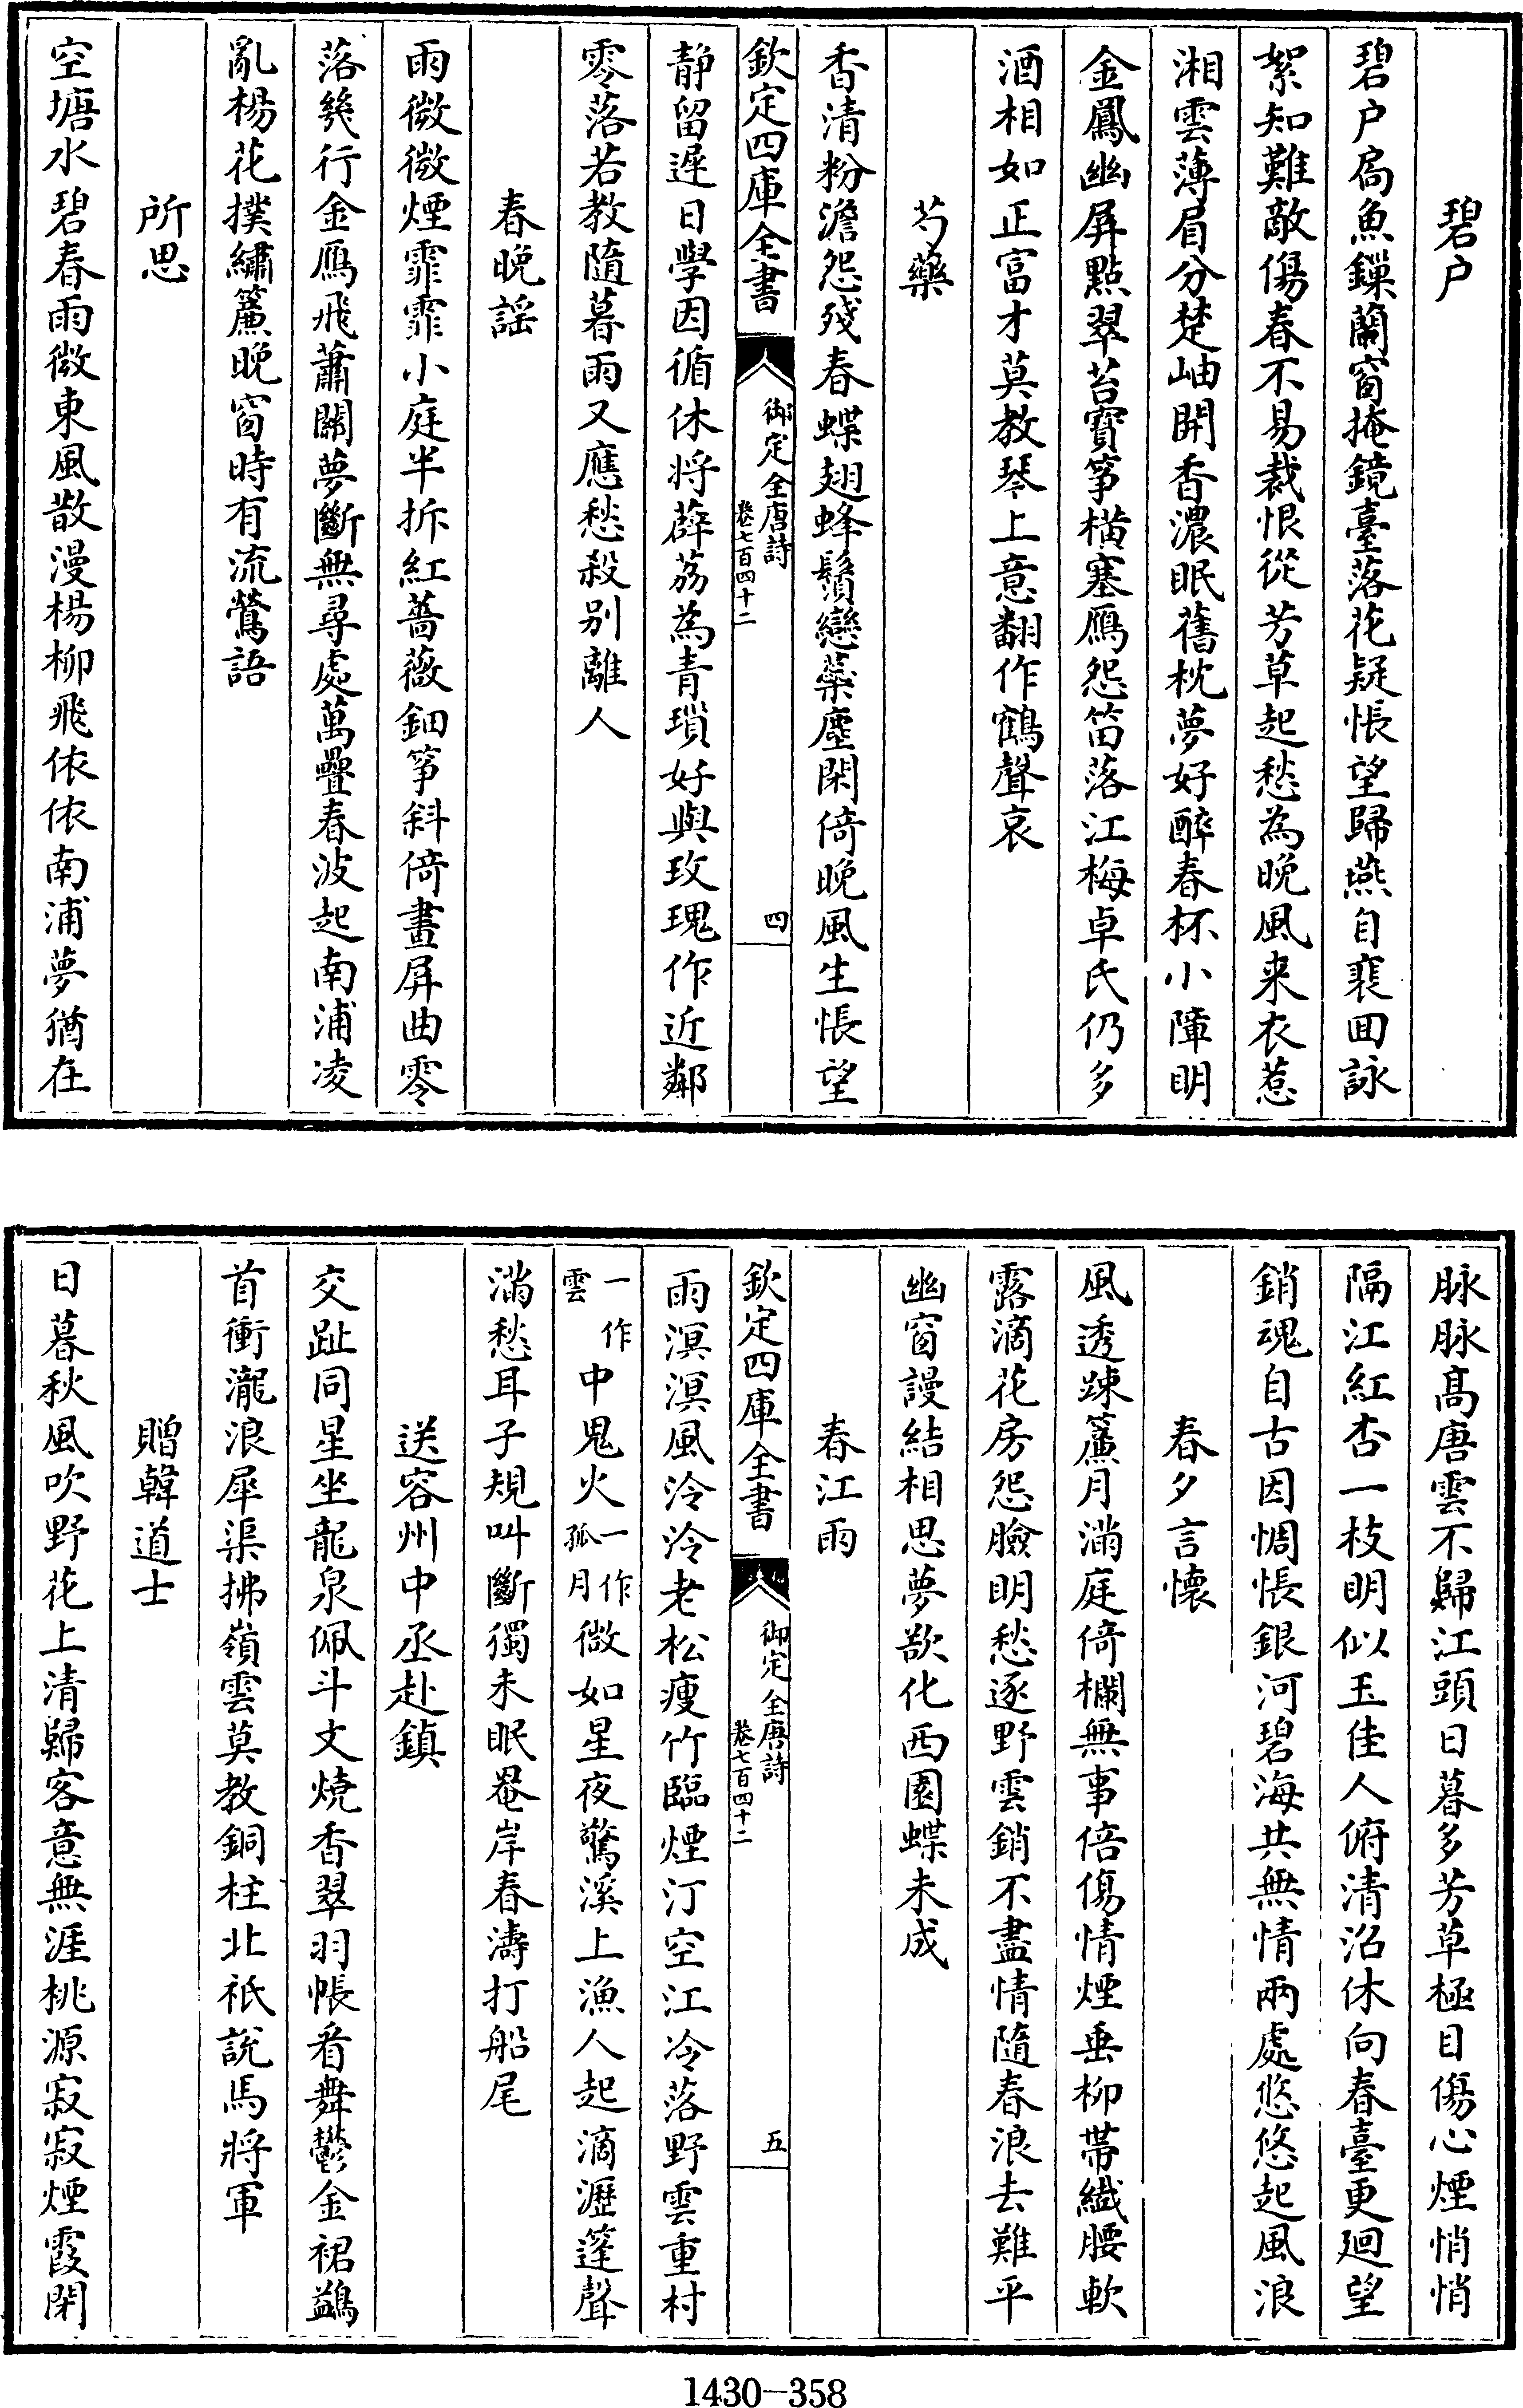 碧户
碧户扃魚鏁蘭窗掩鏡臺落花疑悵望歸燕自裴回詠
絮知難敵傷春不易裁恨從芳草起愁為晚風来衣惹
湘雲薄眉分楚岫開香濃眠舊枕夢好醉春杯小障明
金鳳幽屏點翠苔寶筝横塞鴈怨笛落江梅卓氏仍多
酒相如正富才莫教琴上意翻作鶴聲哀
芍藥
香清粉澹怨殘春蝶翅蜂鬚戀蘂塵閑倚晚風生悵望
欽定四庫全書 御定全唐詩 卷七百四十二 四
静留遲日學因循休将薜荔為青瑣好與玫瑰作近鄰
零落若教隨暮雨又應愁殺别離人
春晚謡
雨微微煙霏霏小庭半拆紅薔薇鈿筝斜倚畫屏曲零
落幾行金鴈飛蕭關夢斷無尋處萬疊春波起南浦凌
亂楊花撲繡簾晚窗時有流鶯語
所思
空塘水碧春雨微東風散漫楊柳飛依依南浦夢猶在
脉脉髙唐雲不歸江頭日暮多芳草極目傷心煙悄悄
隔江紅杏一枝明似玉佳人俯清沼休向春臺更廻望
銷魂自古因惆悵銀河碧海共無情兩處悠悠起風浪
春夕言懷
風透踈簾月滿庭倚欄無事倍傷情煙垂柳帶纎腰軟
露滴花房怨臉明愁逐野雲銷不盡情隨春浪去難平
幽窗謾結相思夢欲化西園蝶未成
春江雨
欽定四庫全書 御定全唐詩 卷七百四十二 五
雨溟溟風泠泠老松瘦竹臨煙汀空江冷落野雲重村
一作雲中鬼火一作孤月微如星夜驚溪上漁人起滴瀝篷聲
滿愁耳子規叫斷獨未眠罨岸春濤打船尾
送容州中丞赴鎮
交趾同星坐龍泉佩斗文燒香翠羽帳看舞鬱金裙鷁
首衝瀧浪犀渠拂嶺雲莫教銅柱北祇說馬將軍
贈韓道士
日暮秋風吹野花上清歸客意無涯桃源寂寂煙霞閉
1430—358